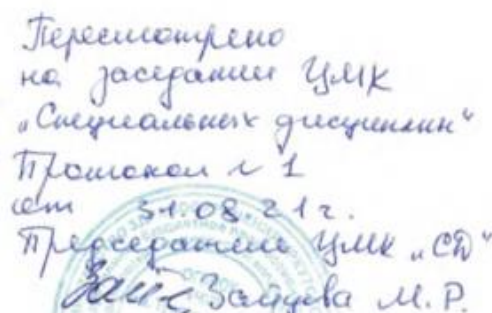 Пересмотрено
на заседании ЦМК
„Специальных дисциплин“
Протокол № 1
от 31.08.21г.
Председатель ЦМК „СД“
Зайцева М.Р.